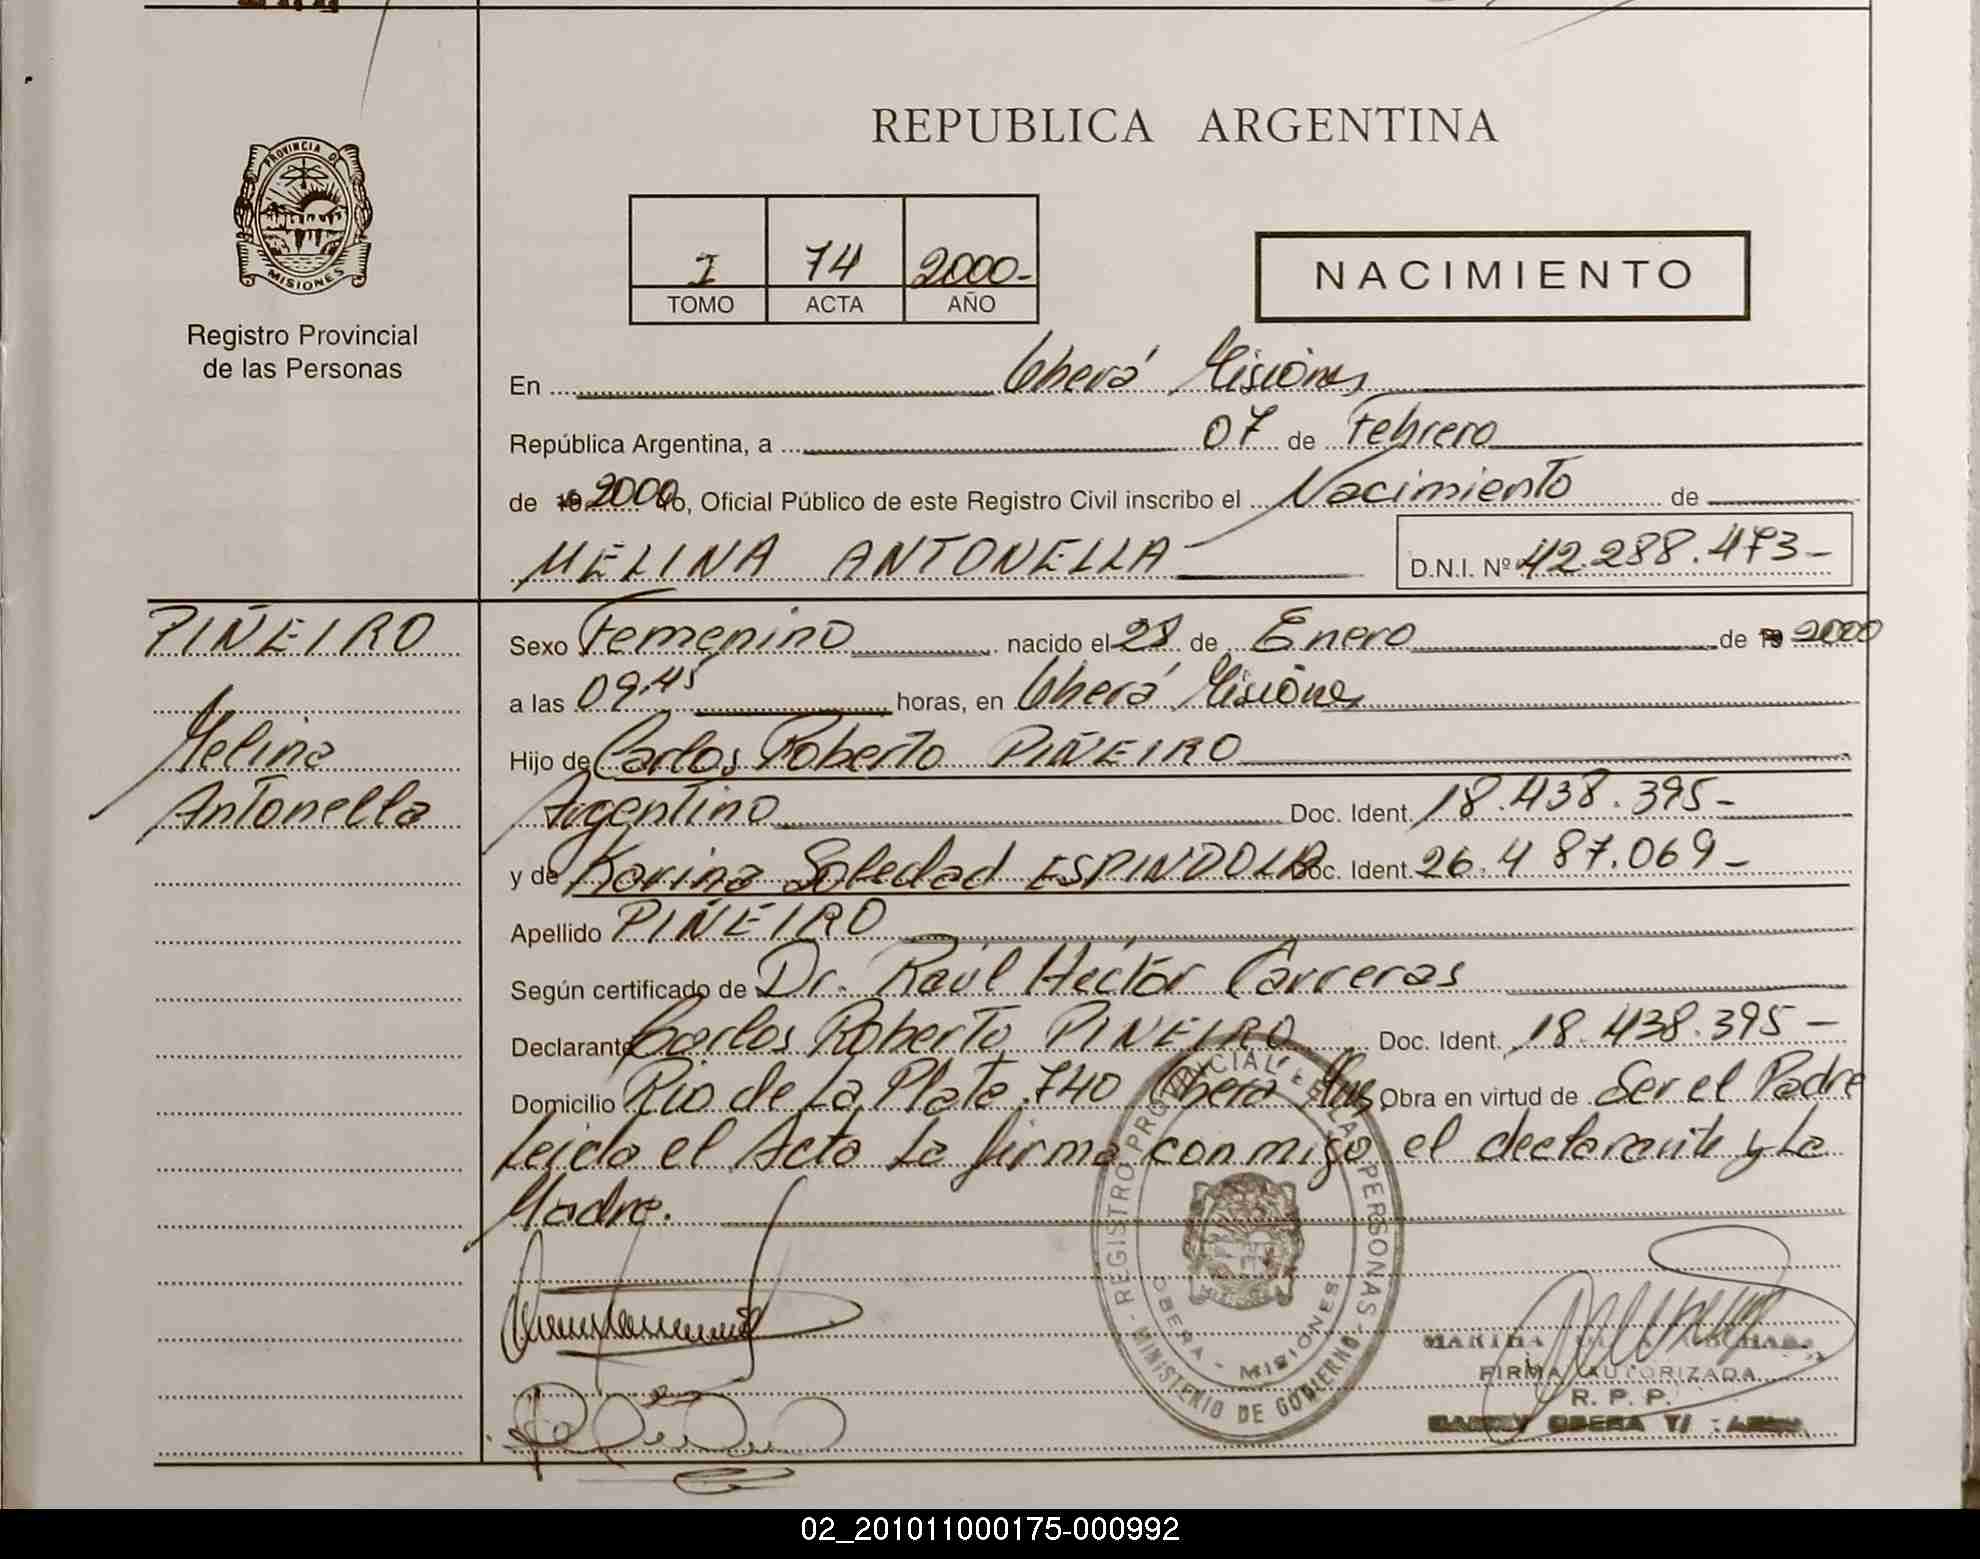 REPUBLICA ARGENTINA
PROVINCIA DE
MISIONES
Registro Provincial
de las Personas
I 74 2000-
TOMO ACTA AÑO
NACIMIENTO
En Oberá Misiones
República Argentina, a 07 de Febrero
de 19 2000 Yo, Oficial Público de este Registro Civil inscribo el Nacimiento de
MELINA ANTONELLA D.N.I. Nº 42.288.473-
PIÑEIRO
Melina
Antonella
Sexo Femenino nacido el 28 de Enero de 19 2000
a las 09.45 horas, en Oberá Misiones
Hijo de Carlos Roberto PIÑEIRO
Argentino Doc. Ident. 18.438.395-
y de Karina Soledad ESPINDOLA Doc. Ident. 26.487.069-
Apellido PIÑEIRO
Según certificado de Dr. Raúl Héctor Carreras
Declarante Carlos Roberto PIÑEIRO Doc. Ident. 18.438.395-
Domicilio Rio de La Plata 740 Oberá Mns Obra en virtud de Ser el Padre
Leida el Acta La firma conmigo el declarante y La
Madre.
REGISTRO PROVINCIAL DE LAS PERSONAS
OBERA - MISIONES
MINISTERIO DE GOBIERNO
FIRMA AUTORIZADA
R. P. P.
OBERA
02_201011000175-000992